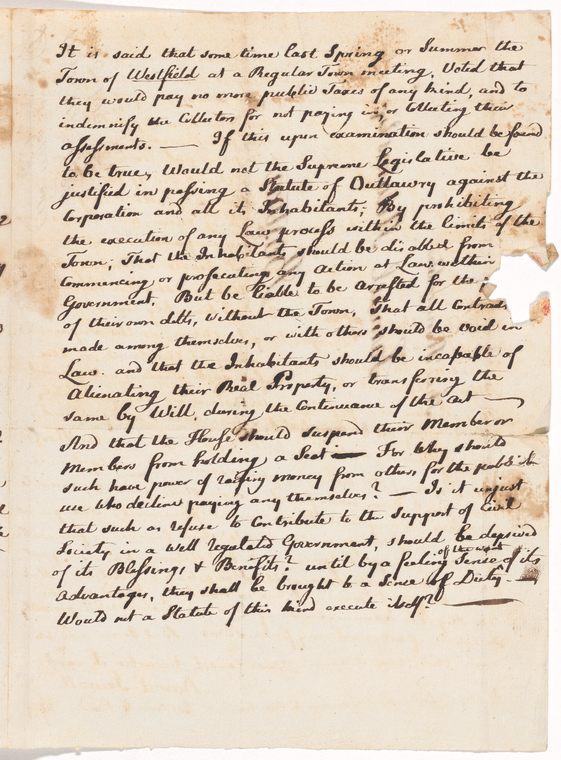 It is said that some time last Spring or Summer the
Town of Westfield at a Regular Town meeting, Voted that
they would pay no more public Taxes of any kind, and to
indemnify the Collectors for not paying in, or Collecting their
assessments. — If this upon examination should be found
to be true, Would not the Supreme Legislative be
justified in passing a Statute of Outlawry against the
Corporation and all its Inhabitants; By prohibiting
the execution of any Law process within the limits of the
Town; That the Inhabitants should be disabled from
Commencing or prosecuting any Action at Law within
Government. But be liable to be Arrested for the
of their own debts, without the Town, that all Contracts
made among themselves, or with others should be void in
Law. and that the Inhabitants should be incapable of
Alienating their Real Property, or transferring the
same by Will, during the Continuance of the act —
And that the House should suspend their Member or
Members from holding a Seat — For Why should
such have power of raising money from others for the publick
use who decline paying any themselves? — Is it unjust
that such as refuse to Contribute to the Support of Civil
Society in a well regulated Government, should be deprived
of its Blessings & Benefits? until by a feeling Sense of the want of its
Advantages, they shall be brought to a Sence of Duty —
Would not a Statute of this kind execute itself? —